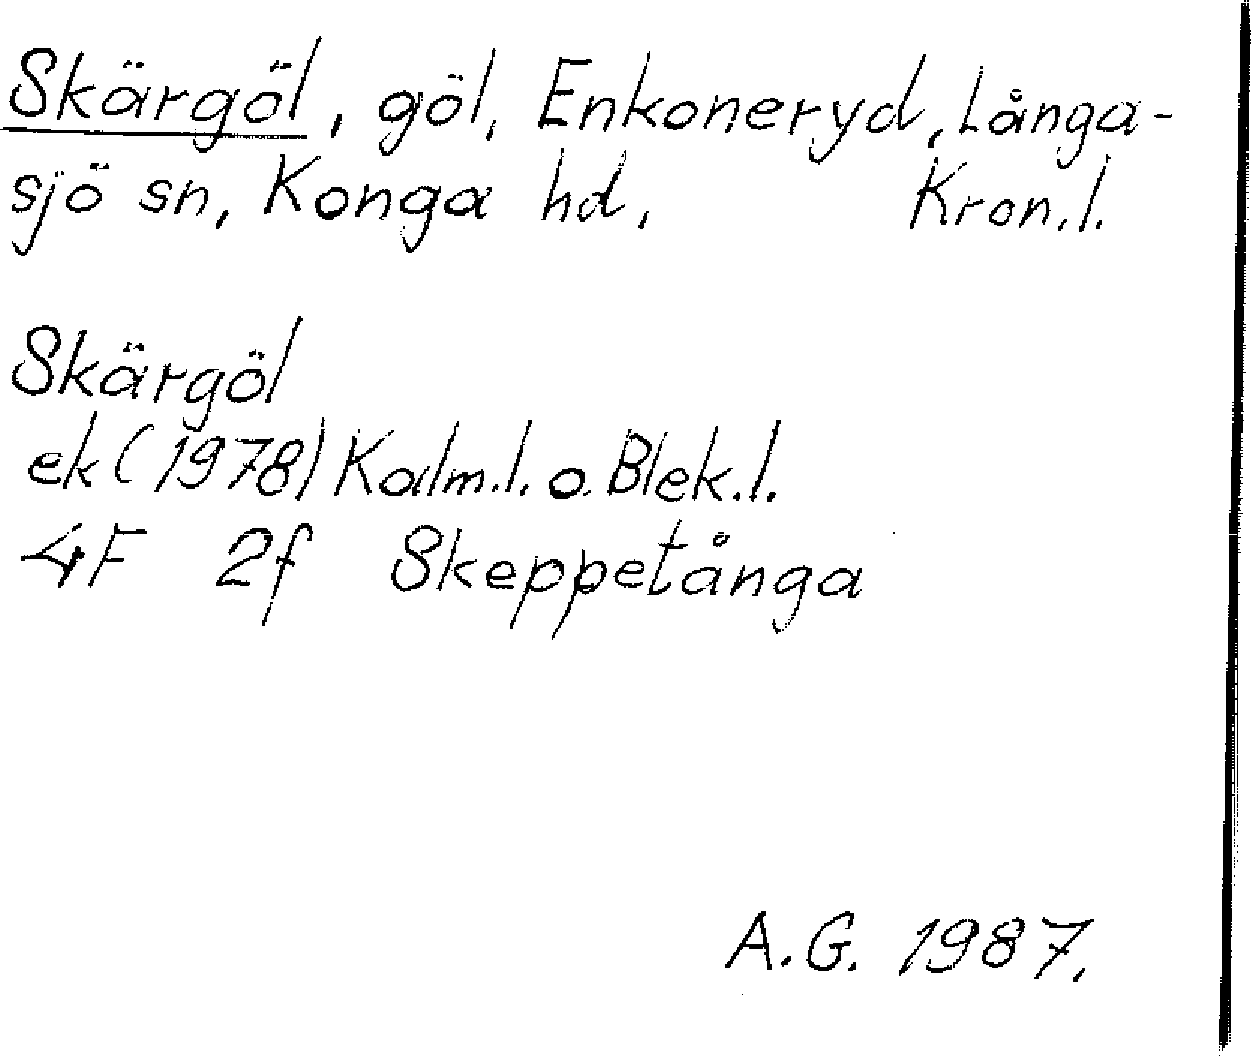 Skärgöl, göl, Enkoneryd, Långa-
sjö sn, Konga hd, Kron.l.
Skärgöl
ek (1978) Kalm.l. o. Blek.l.
4F 2f Skeppetånga
A.G. 1987.